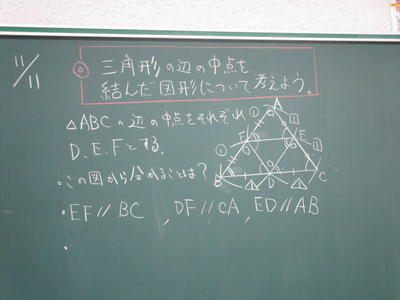 11/11
◎ 三角形の辺の中点を
結んだ図形について考えよう。
△ABCの辺の中点をそれぞれ
D、E、Fとする。
・この図から分かることは?
A
F E
B D C
① ① ① ①
△1 △1
・EF//BC , DF//CA , ED//AB
・